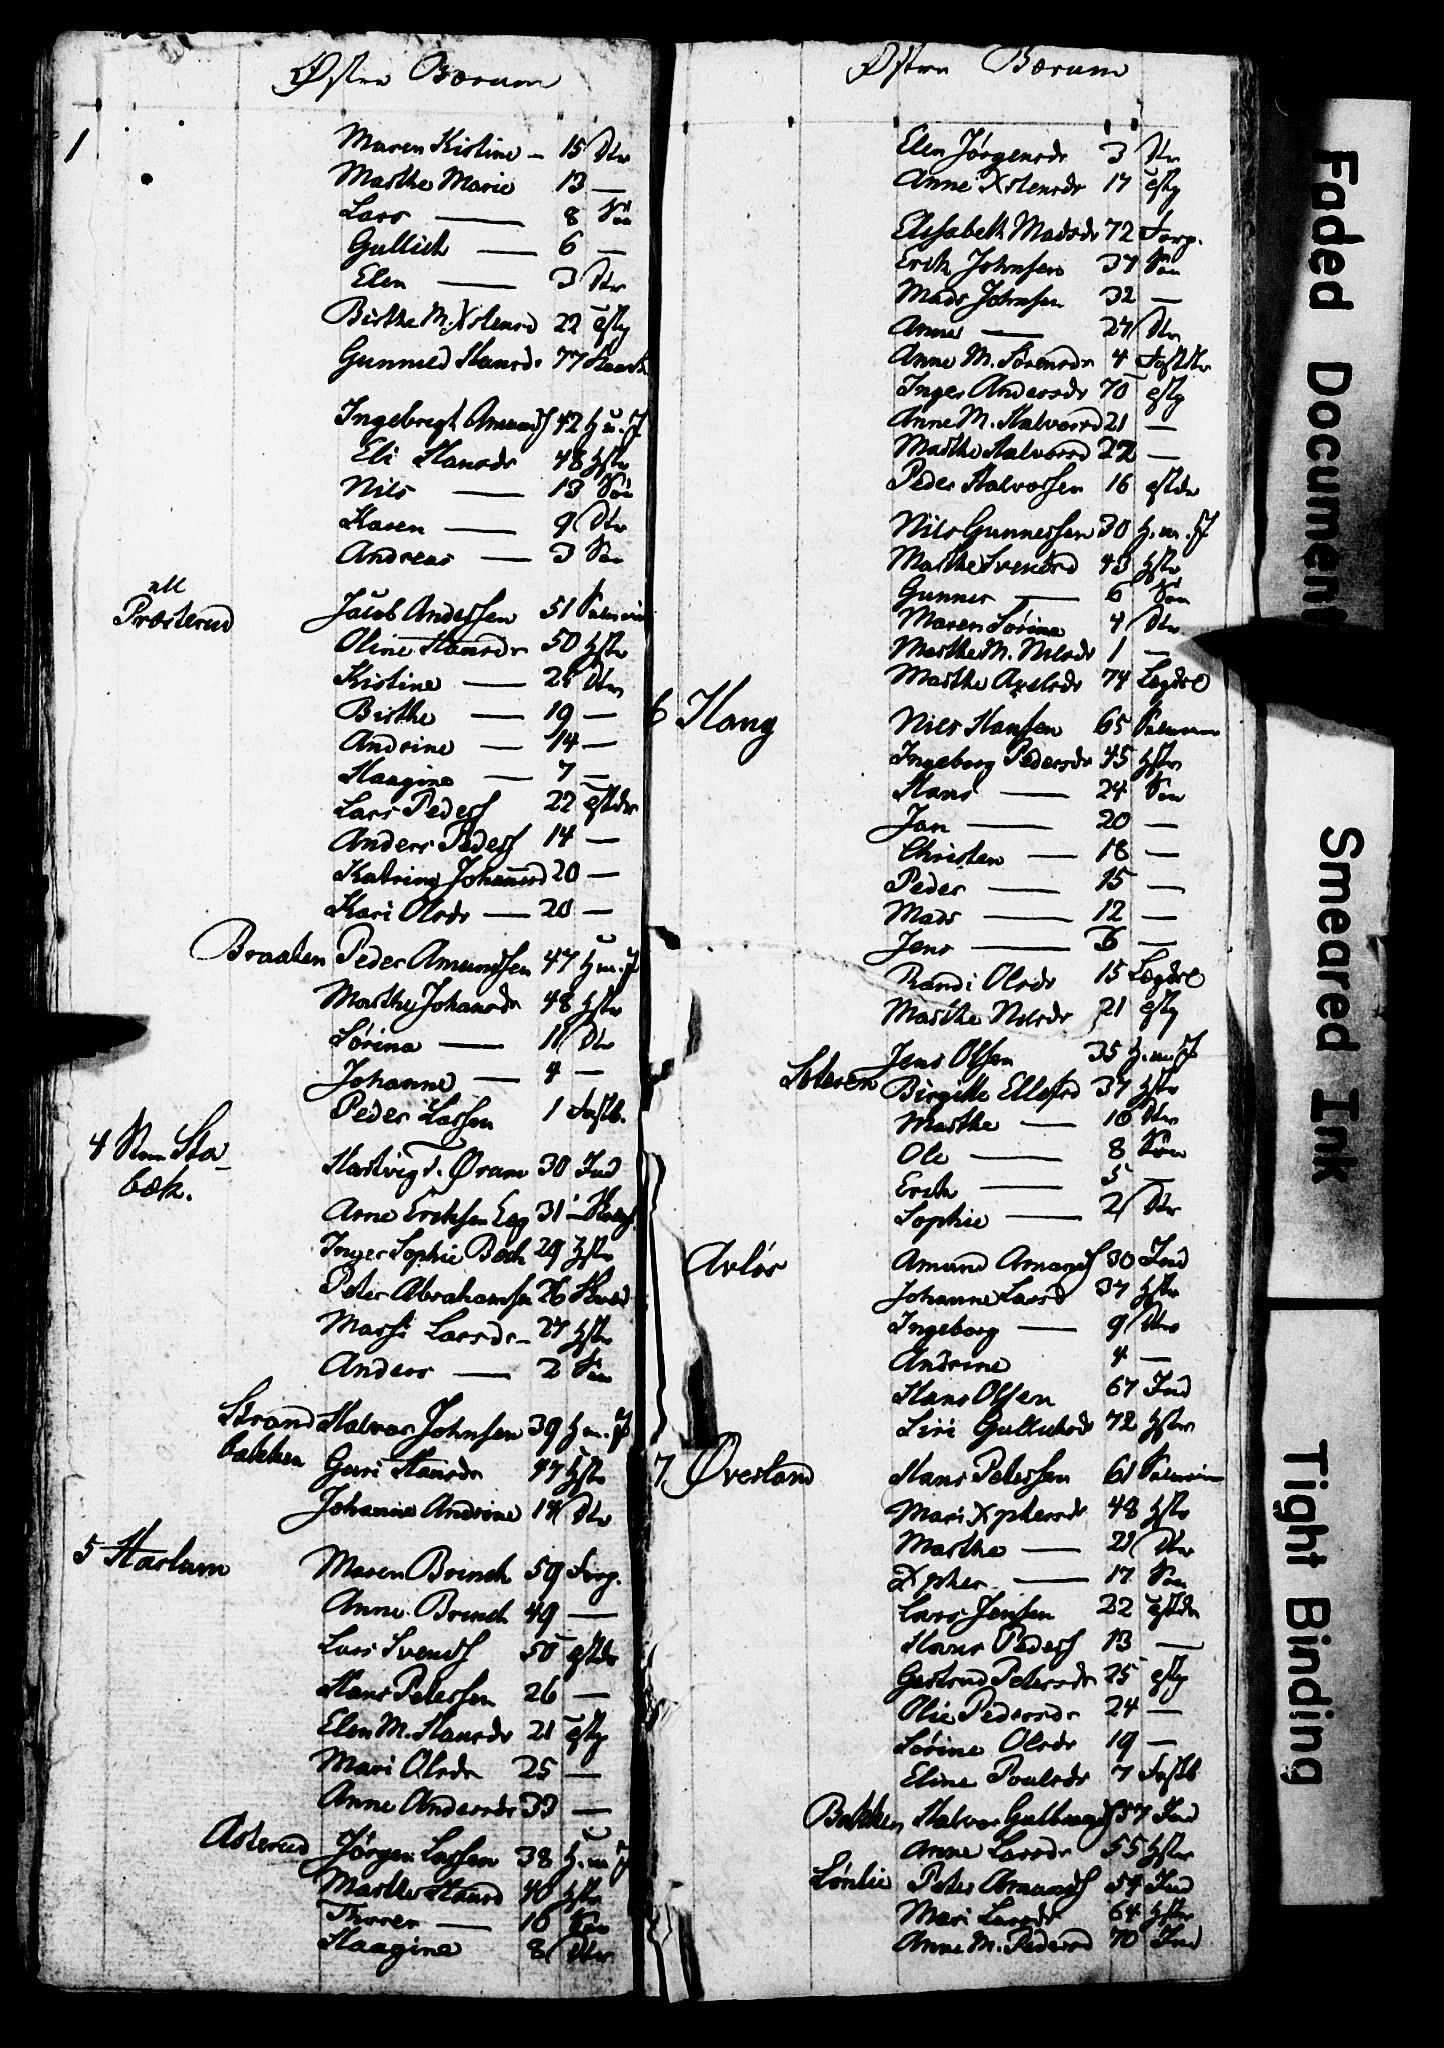 Østre Bærum
1
Maren Kistine - 15 Dtr
Marthe Marie 13 —
Lars — 8 Søn
Gullich — 6 —
Elen — 3 Dtr
Birthe M. Xstensd 22
Gunnild Hansdr 77
Ingebregt Amunds 42 H.m.J
Eli Hansdr 48 Hstr
Nils — 13 Søn
Karen — 9 Dtr
Andreas — 3 Søn
Præsterud
Jacob Andersen 51
Oline Hansdr 50 Hstr
Kistine — 25 Dtr
Birthe — 19 —
Andrine — 14 —
Haagine — 7 —
Lars Peders 22
Anders Peders 14 —
Katrine Johansd 20 —
Kari Olsdr — 20 —
Braaten Peder Amundsen 47 H.m.J
Marthe Johansdr 48 Hstr
Sørine — 11 Dtr
Johanne — 4 —
Peder Larsen 1 Fostb.
4 Sta-
bæk.
Hartvig 30 Ind
Arne Ericksen 31
Inger Sophie Bech 29 Hstr
Peter Abrahamsen 26
Marthe Larsdr - 27 Hstr
Anders — 2 Søn
Strand Halvor Johnsen 39 H.m.J
bakken Guri Hansdr 47 Hstr
Johanne Andrine 14 Dtr
5 Haslum
Maren Brinch 59 Forp.
Anne Brinch 49 —
Lars Svends 50
Hans Petersen 26 —
Elen M. Hansdr 21
Mari Olsdr 25 —
Anne Andersdr 33 —
Asterud Jørgen Larsen 38 H.m.J
Marthe Hansd 40 Hstr
Thorer — 10 Søn
Haagine 8 Dtr
Østre Bærum
Elen Jørgensdr 3 Dtr
Anne Xstensdr 17
Elisabeth Madsdr 72 Forp.
Erik Johnsen 37 Søn
Mads Johnsen 32 —
Anne — 27 Dtr
Anne M. Sørensdr 4 Fostdtr
Inger Andersdr 70
Anne M. Halvorsd 21 —
Marthe Halvorsd 22 —
Peder Halvorsen 16
Nils Gunnersen 30 H.m.J
Marthe Svendsd 43 Hstr
Gunner — 6 Søn
Maren Sørine 4 Dtr
Marthe M. Nilsdr 1 —
Marthe Axelsdr 74 Lægdsl
6 Haug
Nils Hansen 65
Ingeborg Pedersdr 45 Hstr
Hans — 24 Søn
Jan — 20 —
Christen — 18 —
Peder — 15 —
Mads — 12 —
Jens — 6 —
Randi Olsdr 15 Lægdsl
Marthe Nilsdr 21
Jens Olsen 35 H.m.J
Birgitte Ellefsd 37 Hstr
Marthe — 10 Dtr
Ole — 8 Søn
Erik — 5 —
Sophie — 2 Dtr
Avløs
Amund Amunds 30 Ind
Johanne Larsd 37 Hstr
Ingeborg — 9 Dtr
Andrine 4 —
Hans Olsen 67 Ind
Siri Gullicksdr 72 Hstr
7 Øverland
Hans Petersen 61
Mari Xphersdr 48 Hstr
Marthe — 21 Dtr
Xpher — 17 Søn
Lars Jensen 22
Hans Peders 13 —
Gertrud Petersdr 25
Olie Pedersdr 24 —
Sørine Olsdr 19 —
Eline Poulsdr 7 Fostb
Bakken Halvor Gulbrands 57 Ind
Anne Larsdr 55 Hstr
Lønlie Peter Amunds 54 Ind
Mari Larsdr 64 Hstr
Anne M. Pedersd 70 Ind
Faded Document
Smeared Ink
Tight Binding